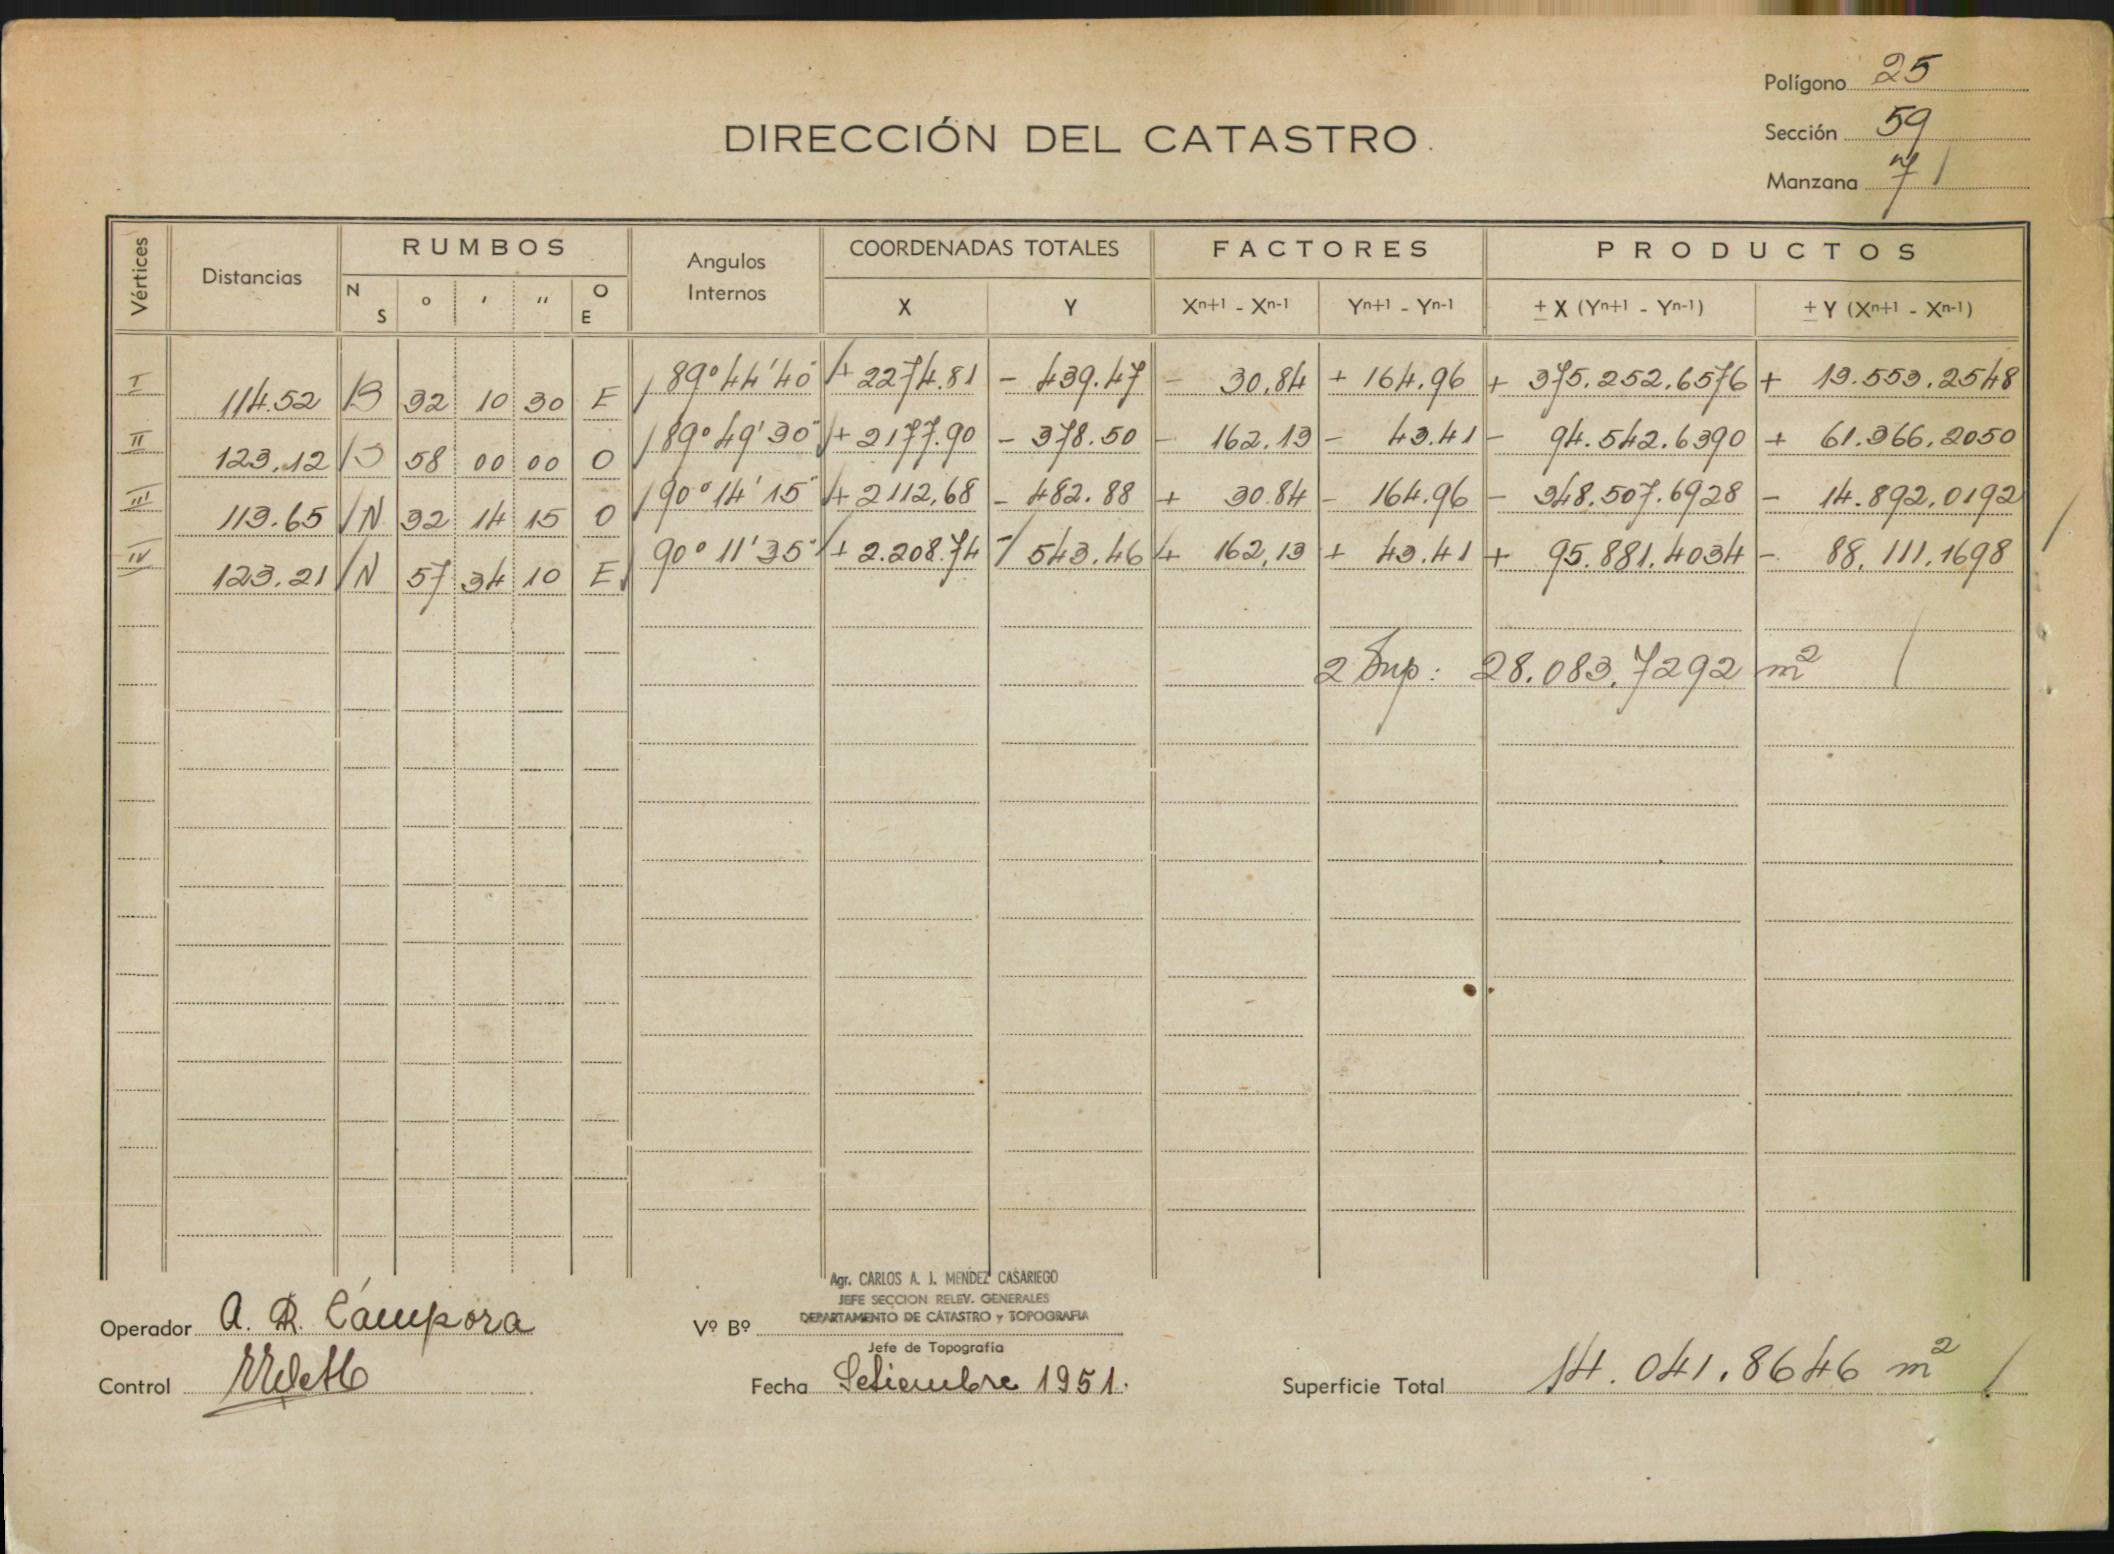 Polígono 25
DIRECCIÓN DEL CATASTRO.
Sección 59
Manzana 71
Vértices Distancias RUMBOS Angulos Internos COORDENADAS TOTALES FACTORES PRODUCTOS
N S o ' " O E X Y Xn+1 - Xn-1 Yn+1 - Yn-1 ± X (Yn+1 - Yn-1) ± Y (Xn+1 - Xn-1)
I 114.52 S 32 10 30 E 89° 44' 40" + 2274.81 - 439.47 - 30.84 + 164.96 + 375.252.6576 + 13.553.2548
II 123.12 S 58 00 00 O 89° 49' 30" + 2177.90 - 378.50 - 162.13 - 43.41 - 94.542.6390 + 61.366.2050
III 113.65 N 32 14 15 O 90° 14' 15" + 2112.68 - 482.88 + 30.84 - 164.96 - 348.507.6928 - 14.892.0192
IV 123.21 N 57 34 10 E 90° 11' 35" + 2.208.74 - 543.46 + 162,13 + 43.41 + 95.881.4034 - 88.111.1698
2 Sup: 28.083.7292 m²
Agr. CARLOS A. J. MENDEZ CASARIEGO
JEFE SECCION RELEV. GENERALES
DEPARTAMENTO DE CATASTRO y TOPOGRAFIA
Operador A. R. Cámpora Vº Bº
Jefe de Topografía
Control Fecha Setiembre 1951. Superficie Total 14.041.8646 m²